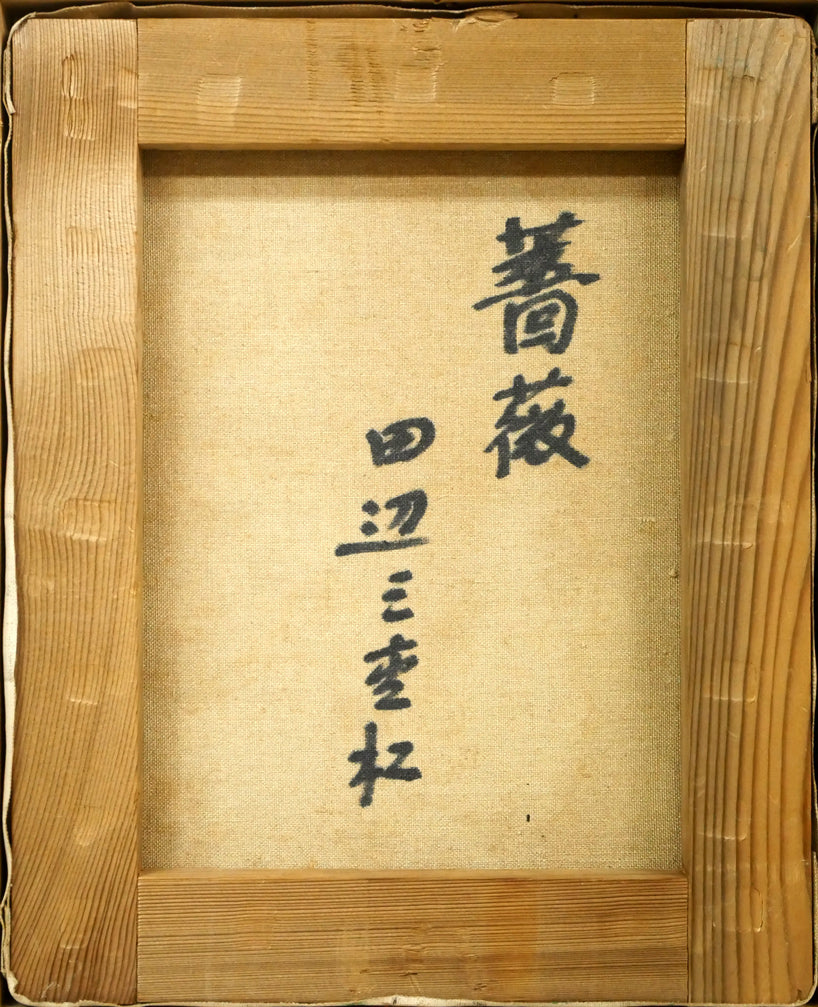 薔薇
田辺三重松